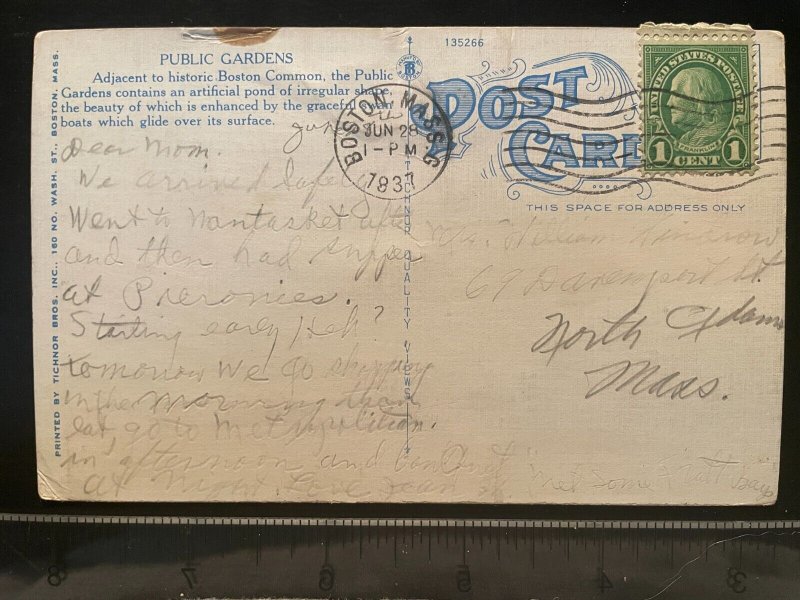 PUBLIC GARDENS
Adjacent to historic Boston Common, the Public
Gardens contains an artificial pond of irregular shape,
the beauty of which is enhanced by the graceful swan
boats which glide over its surface.
135266
POST
CARD
THIS SPACE FOR ADDRESS ONLY
BOSTON MASS
JUN 28
1-PM
1937
UNITED STATES POSTAGE
FRANKLIN
1 CENT 1
PRINTED BY TICHNOR BROS. INC., 160 NO. WASH. ST., BOSTON, MASS.
TICHNOR QUALITY VIEWS
Dear Mom.
We arrived safely
Went to Nantasket after
and then had supper
at Pieronies.
Starting early Heh?
tomorrow We go shopping
in the morning than
eat go to Metropolitan.
in afternoon and
at night. Love Joan
Mrs. William
69 Davenport St.
North Adams
Mass.
met some
8 7 6 5 4 3